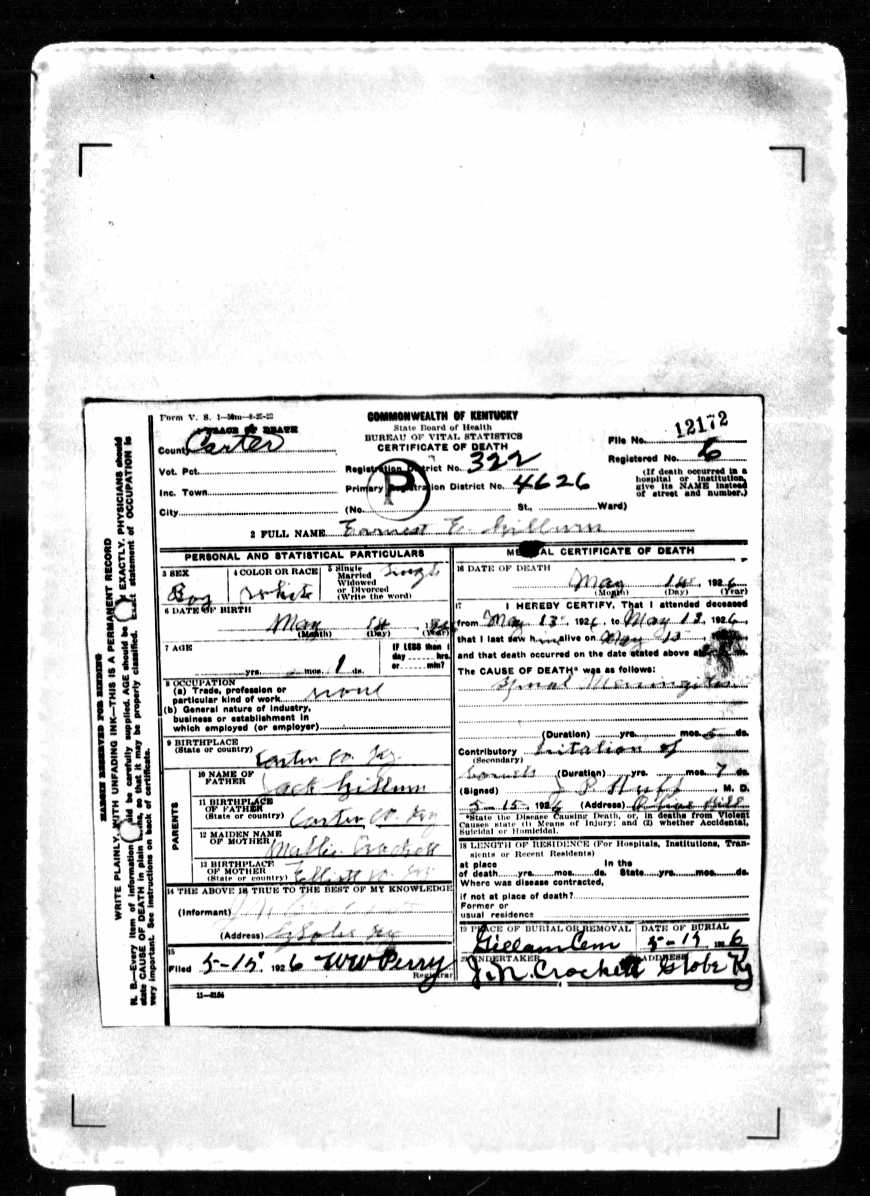 Form V. S. 1-50m-8-25-22
PLACE OF DEATH
County Carter
Vot. Pct.
Inc. Town
City
COMMONWEALTH OF KENTUCKY
State Board of Health
BUREAU OF VITAL STATISTICS
CERTIFICATE OF DEATH
Registration District No. 322
Primary Registration District No. 4626
(No. St., Ward)
P
File No. 12172
Registered No. 6
(If death occurred in a
hospital or institution,
give its NAME instead
of street and number.)
2 FULL NAME Earnest E.
PERSONAL AND STATISTICAL PARTICULARS
3 SEX
Boy
4 COLOR OR RACE
White
5 Single
Married
Widowed
or Divorced
(Write the word)
Single
6 DATE OF BIRTH
May
(Month) (Day) (Year)
7 AGE
yrs. mos. 1 ds.
IF LESS than 1
day hrs.
or min?
8 OCCUPATION
(a) Trade, profession or
particular kind of work none
(b) General nature of industry,
business or establishment in
which employed (or employer)
9 BIRTHPLACE
(State or country) Carter Co. Ky.
PARENTS
10 NAME OF
FATHER Jack
11 BIRTHPLACE
OF FATHER
(State or country) Carter Co. Ky
12 MAIDEN NAME
OF MOTHER Mattie Crockett
13 BIRTHPLACE
OF MOTHER
(State or country) Elliott Co. Ky.
14 THE ABOVE IS TRUE TO THE BEST OF MY KNOWLEDGE
(Informant)
(Address) Globe Ky
15
Filed 5-15 1926 WW Perry
Registrar
11-3184
MEDICAL CERTIFICATE OF DEATH
16 DATE OF DEATH
May 14 1926
(Month) (Day) (Year)
17 I HEREBY CERTIFY, That I attended deceased
from May 13 1926, to May 13 1926,
that I last saw him alive on May 13
and that death occurred on the date stated above at
The CAUSE OF DEATH* was as follows:
Spinal Meningitis
(Duration) yrs. mos. 5 ds.
Contributory Iritation of
(Secondary)
(Duration) yrs. mos. 7 ds.
(Signed) J P M. D.
5-15, 1926 (Address) Olive Hill
*State the Disease Causing Death, or, in deaths from Violent
Causes state (1) Means of Injury; and (2) whether Accidental,
Suicidal or Homicidal.
18 LENGTH OF RESIDENCE (For Hospitals, Institutions, Tran-
sients or Recent Residents)
at place In the
of death yrs. mos. ds. State yrs. mos. ds.
Where was disease contracted,
if not at place of death?
Former or
usual residence
19 PLACE OF BURIAL OR REMOVAL
Gillam Cem
DATE OF BURIAL
5-15 1926
20 UNDERTAKER
J. N. Crockett
ADDRESS
Globe Ky
MARGIN RESERVED FOR BINDING
WRITE PLAINLY, WITH UNFADING INK—THIS IS A PERMANENT RECORD
N. B.—Every item of information should be carefully supplied. AGE should be stated EXACTLY. PHYSICIANS should
state CAUSE OF DEATH in plain terms, so that it may be properly classified. Exact statement of OCCUPATION is
very important. See instructions on back of certificate.